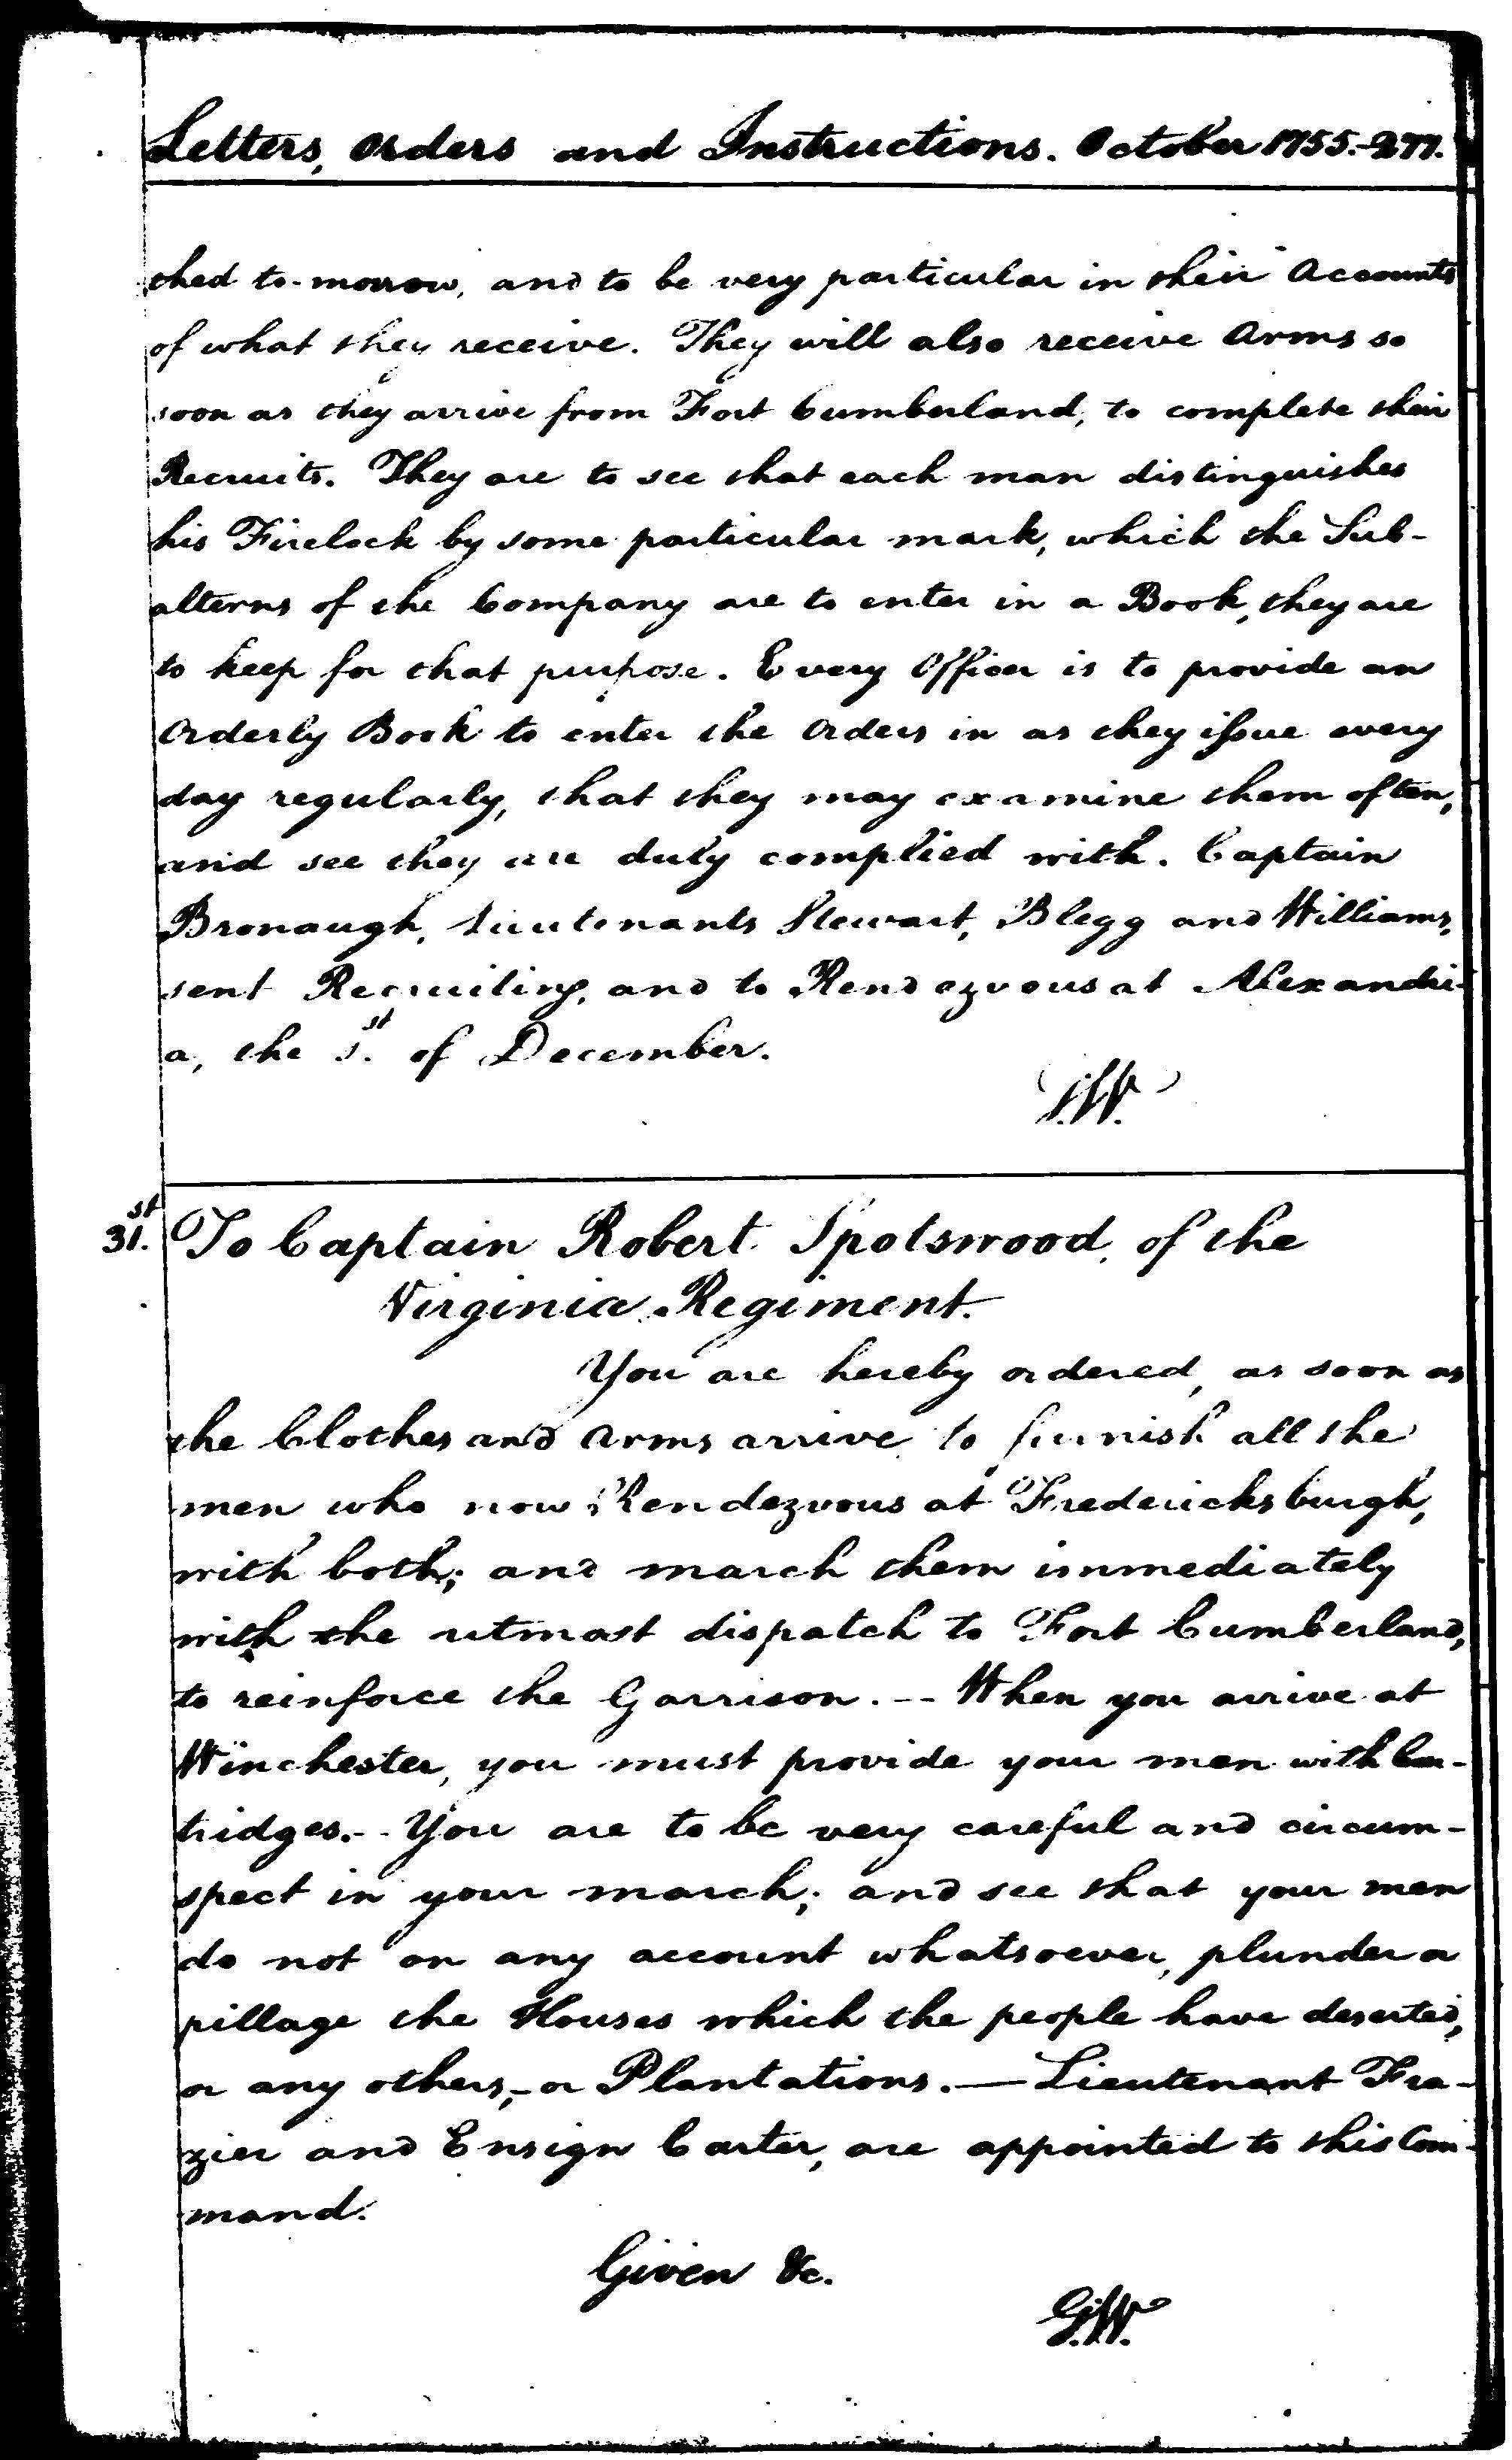 Letters, Orders and Instructions. October 1755. 277.
ched to-morrow, and to be very particular in their Accounts
of what they receive. They will also receive Arms so
soon as they arrive from Fort Cumberland, to complete their
Recruits. They are to see that each man distinguishes
his Firelock by some particular mark, which the Sub-
alterns of the Company are to enter in a Book, they are
to keep for that purpose. Every Officer is to provide an
Orderly Book to enter the Orders in as they issue every
day regularly, that they may examine them often,
and see they are duly complied with. Captain
Bronaugh, Lieutenants Stewart, Blegg and Williams,
sent Recruiting, and to Rendezvous at Alexandri-
a, the 1st. of December.
G:W.
31st. To Captain Robert Spotswood, of the
Virginia Regiment.
You are hereby ordered, as soon as
the Clothes and Arms arrive to furnish all the
men who now Rendezvous at Fredericksburgh,
with both; and march them immediately
with the utmost dispatch to Fort Cumberland,
to reinforce the Garrison. -- When you arrive at
Winchester, you must provide your men with Car-
tridges. -- You are to be very careful and circum-
spect in your march; and see that your men
do not on any account whatsoever, plunder or
pillage the Houses which the people have deserted,
or any others, - or Plantations. — Lieutenant Fra-
zier and Ensign Carter, are appointed to this Com-
mand.
Given &c.
G:W.